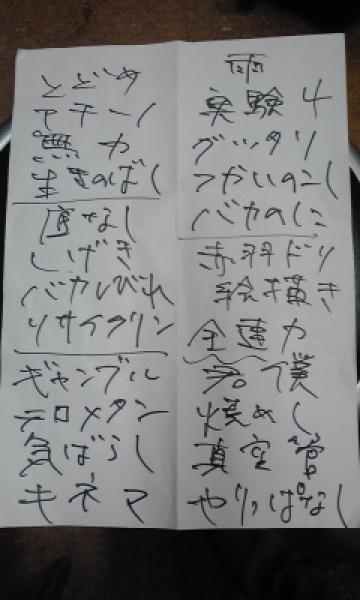 とどめ
アチーノ
無力
生きのばし
底なし
しげき
バカしびれ
リサイクリン
ギャンブル
テロメタン
気ばらし
キネマ
実験4
グッタリ
つかいのこし
バカのしに
赤羽ドリ
絵描き
全速力
僕
焼めし
真空管
やりっぱなし